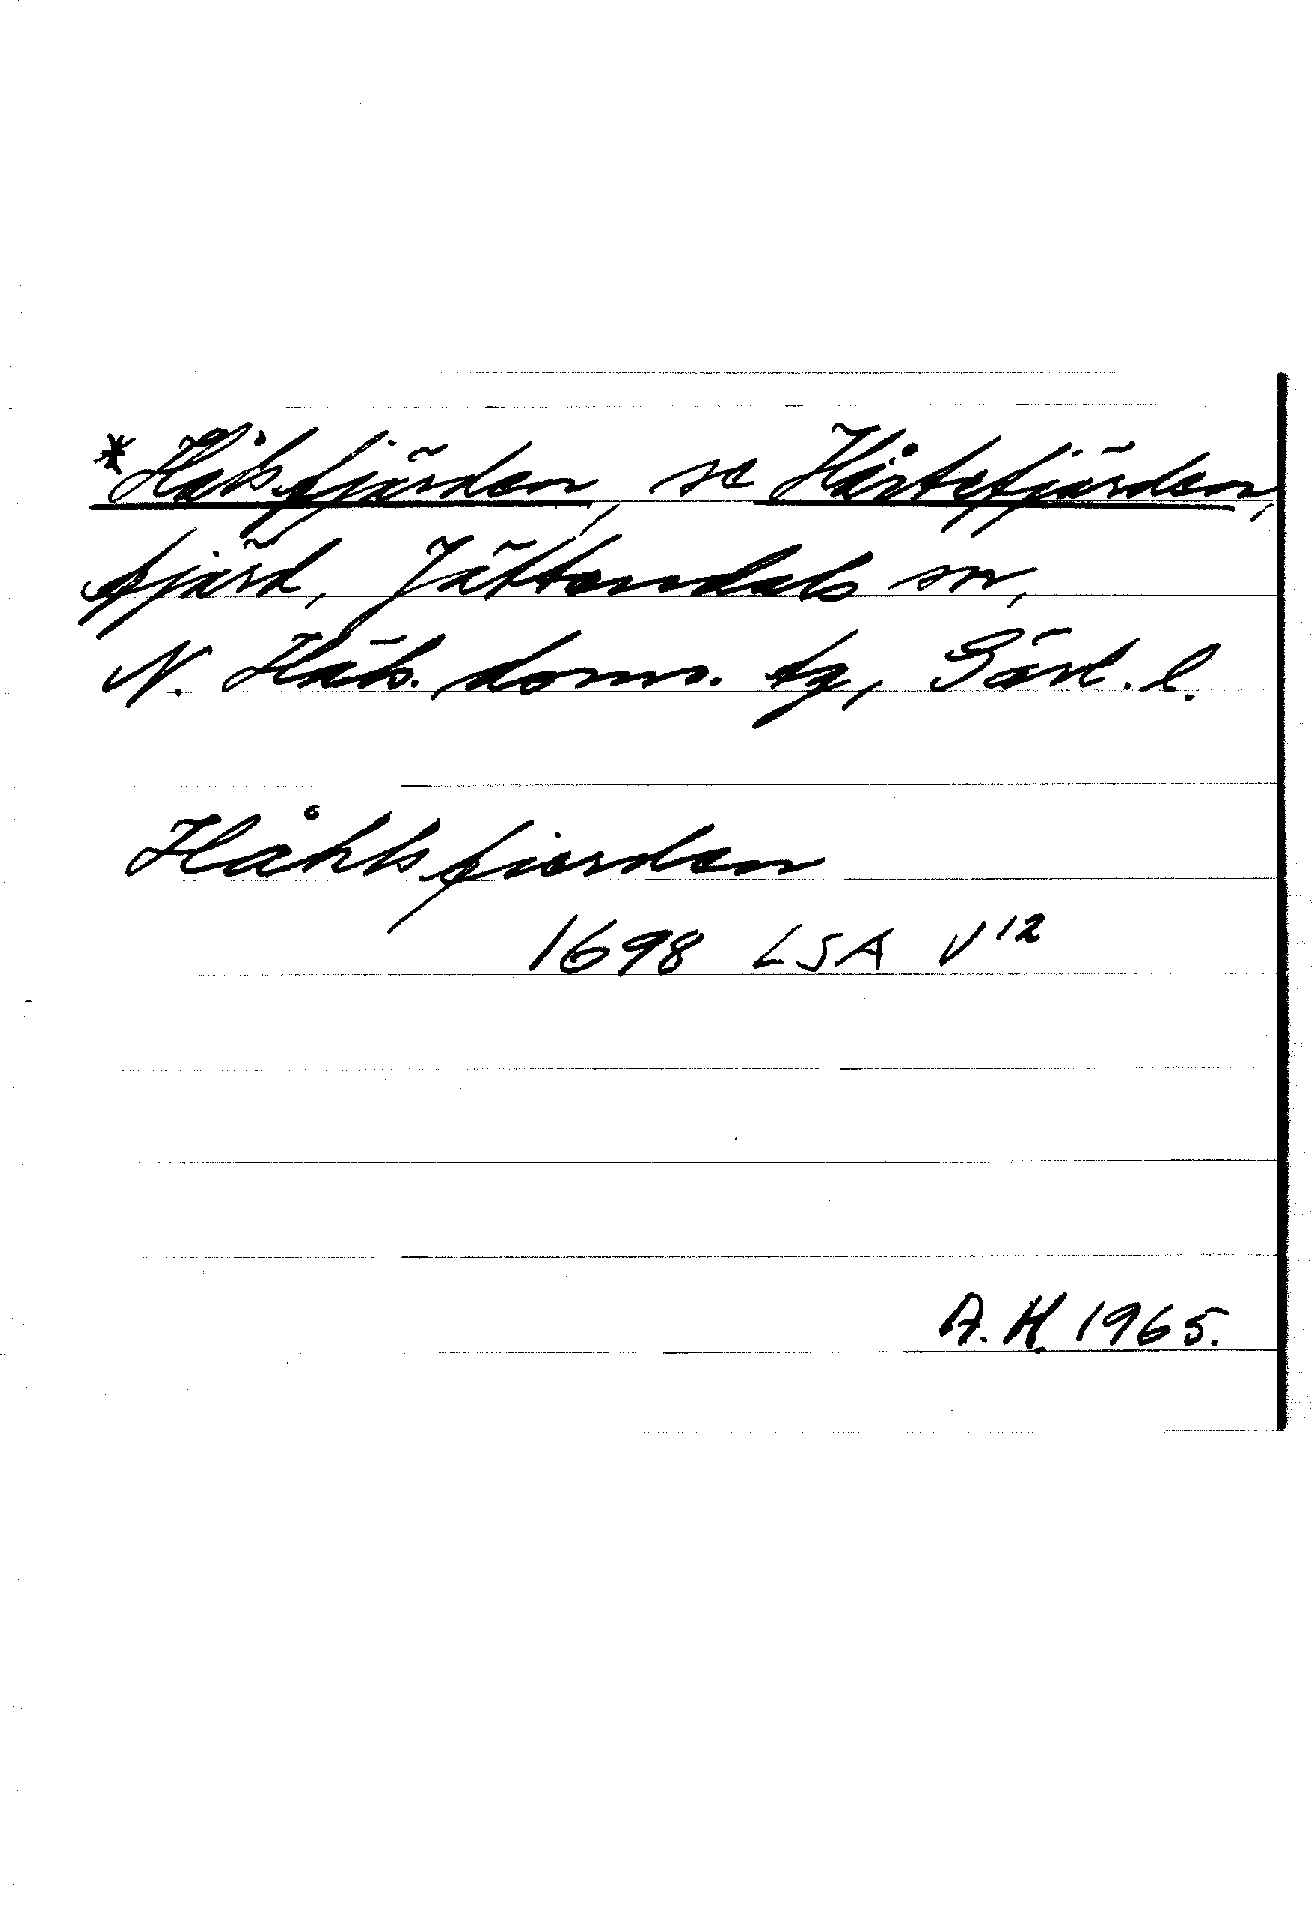 *Håksfjärden se Hårtefjärden,
fjärd, Jättendals sn,
N. Häls. doms. tg, Gävl. l.
Håhlsfiorden
1698 LSA V12
A. H. 1965.